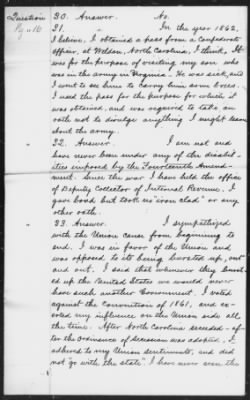 Question 20. Answer. No.
Pg. #16 21. " In the year 1862,
I believe, I obtained a pass from a Confederate
officer, at Weldon, North Carolina, I think. It
was for the purpose of visiting my son who
was in the army in Virginia. He was sick, and
I went to see him to carry him some
I used the pass for the purpose for which it
was obtained, and was required to take an
oath not to divulge anything I might learn
about the army.
" 22. Answer. I am not and
have never been under any of the disabil-
ities imposed by the Fourteenth Amend-
ment. Since the war I have held the office
of Deputy Collector of Internal Revenue. I
gave bond but took no "iron clad" or any
other oath.
" 23. Answer. I sympathized
with the Union cause from beginning to
end. I was in favor of the Union and
was opposed to its being busted up, out
and out. I said that whenever they bust-
ed up the United States we would never
have such another Government. I voted
against the Convention of 1861, and ex-
erted my influence on the Union side all
the time. After North Carolina seceded - af-
ter the Ordinance of Secession was adopted. I
adhered to my Union sentiments, and did
not "go with the state" I have never seen the